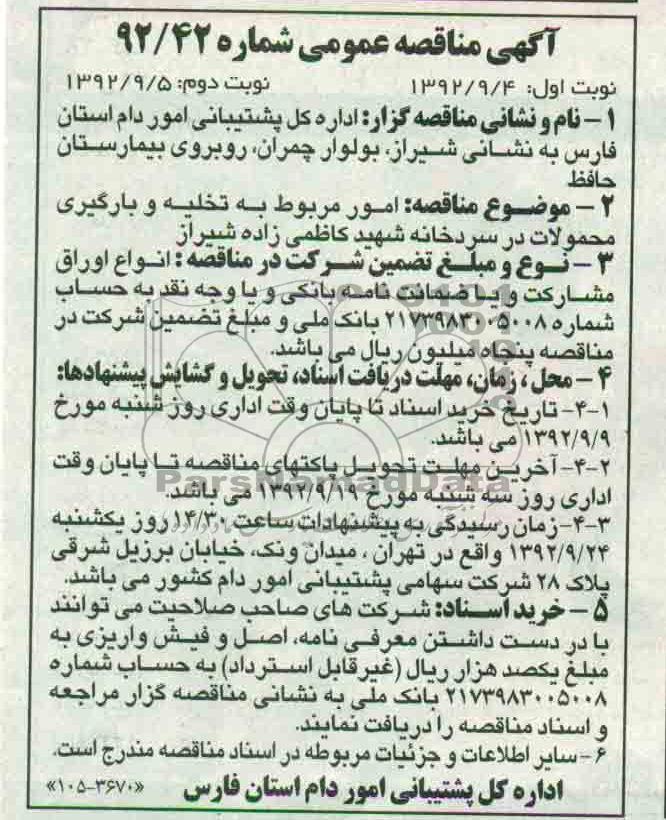 آگهی مناقصه عمومی شماره ۹۲/۴۲
نوبت اول: ۱۳۹۲/۹/۴ نوبت دوم: ۱۳۹۲/۹/۵
۱ – نام و نشانی مناقصه گزار: اداره کل پشتیبانی امور دام استان
فارس به نشانی شیراز، بولوار چمران، روبروی بیمارستان
حافظ
۲ – موضوع مناقصه: امور مربوط به تخلیه و بارگیری
محمولات در سردخانه شهید کاظمی زاده شیراز
۳ – نوع و مبلغ تضمین شرکت در مناقصه : انواع اوراق
مشارکت و یا ضمانت نامه بانکی و یا وجه نقد به حساب
شماره ۲۱۷۳۹۸۳۰۰۵۰۰۸ بانک ملی و مبلغ تضمین شرکت در
مناقصه پنجاه میلیون ریال می باشد.
۴ – محل ، زمان، مهلت دریافت اسناد، تحویل و گشایش پیشنهادها:
۴-۱- تاریخ خرید اسناد تا پایان وقت اداری روز شنبه مورخ
۱۳۹۲/۹/۹ می باشد.
۴-۲- آخرین مهلت تحویل پاکتهای مناقصه تا پایان وقت
اداری روز سه شنبه مورخ ۱۳۹۲/۹/۱۹ می باشد.
۴-۳- زمان رسیدگی به پیشنهادات ساعت ۱۴/۳۰ روز یکشنبه
۱۳۹۲/۹/۲۴ واقع در تهران ، میدان ونک، خیابان برزیل شرقی
پلاک ۲۸ شرکت سهامی پشتیبانی امور دام کشور می باشد.
۵ – خرید اسناد: شرکت های صاحب صلاحیت می توانند
با در دست داشتن معرفی نامه، اصل و فیش واریزی به
مبلغ یکصد هزار ریال (غیرقابل استرداد) به حساب شماره
۲۱۷۳۹۸۳۰۰۵۰۰۸ بانک ملی به نشانی مناقصه گزار مراجعه
و اسناد مناقصه را دریافت نمایند.
۶ -سایر اطلاعات و جزئیات مربوطه در اسناد مناقصه مندرج است.
اداره کل پشتیبانی امور دام استان فارس «۱۰۵-۳۶۷۰»
ParsNamadData